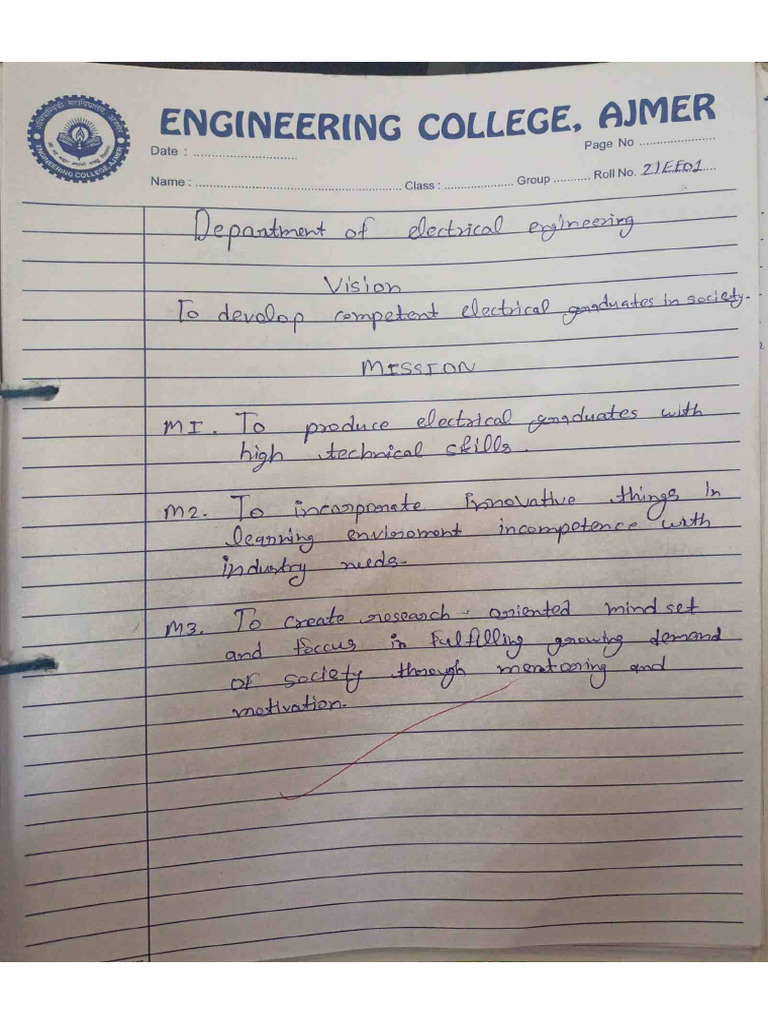 ENGINEERING COLLEGE, AJMER
Date : ............................ Page No ......................
Name : ................................................ Class : .................. Group ........... Roll No. 21EE01
ENGINEERING COLLEGE, AJMER
Department of electrical engineering
Vision
To develop competent electrical graduates in society.
MISSION
M1. To produce electrical graduates with
high technical skills.
M2. To incorporate Innovative things in
learning enviroment incompetence with
industry needs.
M3. To create research oriented mind set
and foccus in fulfilling growing demand
of society through mentoring and
motivation.